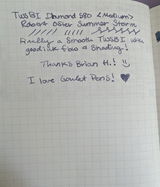 TWSBI Diamond 580 <Medium>
Robert Oster Summer Storm
Really a Smooth TWSBI with
good ink flow & Shading!
Thanks Brian H.! ☺
I love Goulet Pens! ♥